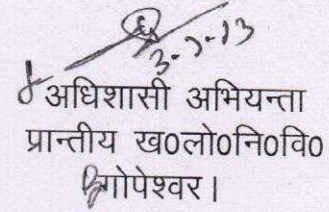 3-7-13
अधिशासी अभियन्ता
प्रान्तीय ख०लो०नि०वि०
गोपेश्वर।